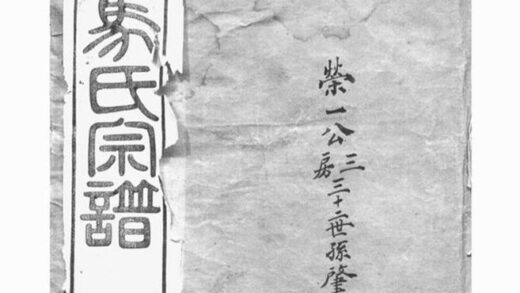 榮一公三房三十二世孫肇
馬氏宗譜